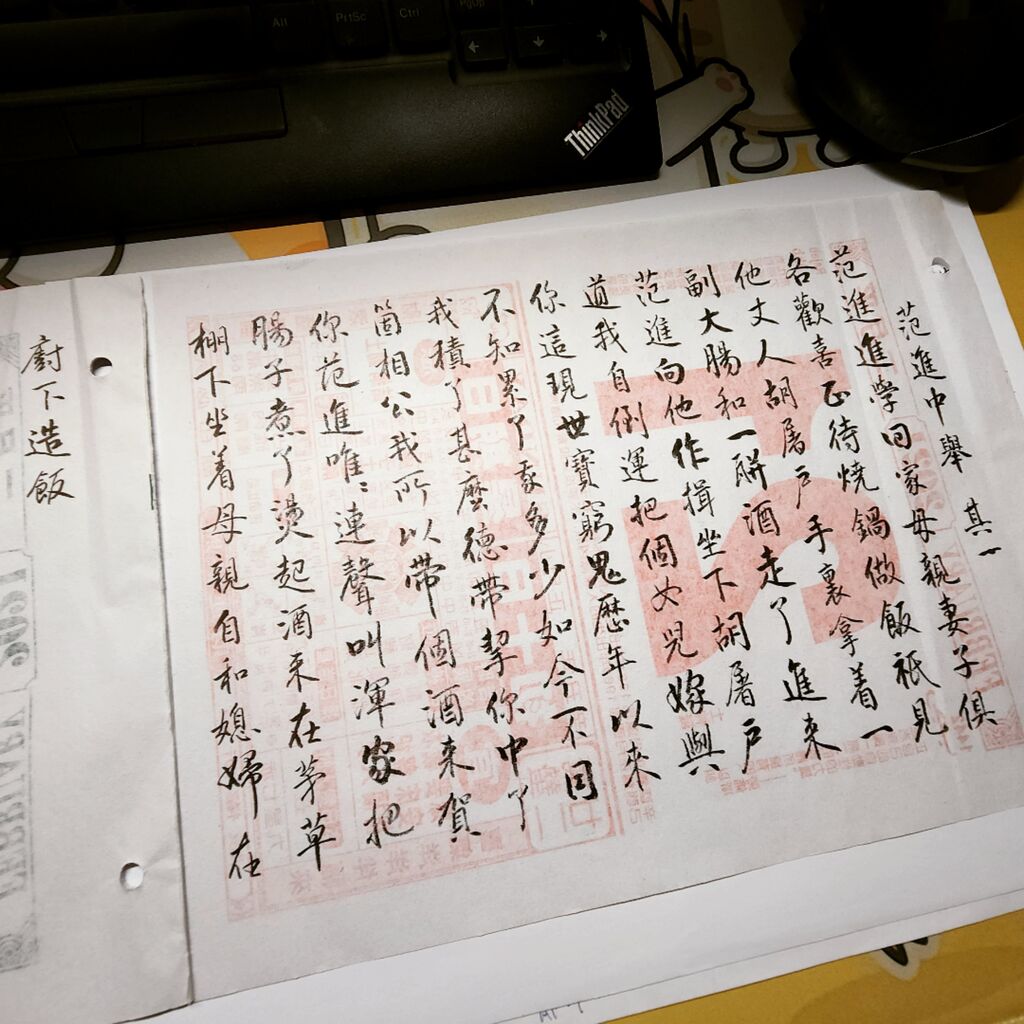 范進中舉 其一
范進進学回家母親妻子俱
各歡喜正待燒鍋做飯祇見
他丈人胡屠戶手裏拿着一
副大腸和一缾酒走了進來
范進向他作揖坐下胡屠戶
道我自倒運把個女兒嫁與
你這現世寶窮鬼歷年以來
不知累了我多少如今不因
我積了甚麼德帶挈你中了
箇相公我所以帶個酒来賀
你范進唯〻連聲叫渾家把
腸子煮了燙起酒来在茅草
棚下坐着母親自和媳婦在
廚下造飯
ThinkPad
Alt
PrtSc
Ctrl
PgUp
FEBRUARY 1996